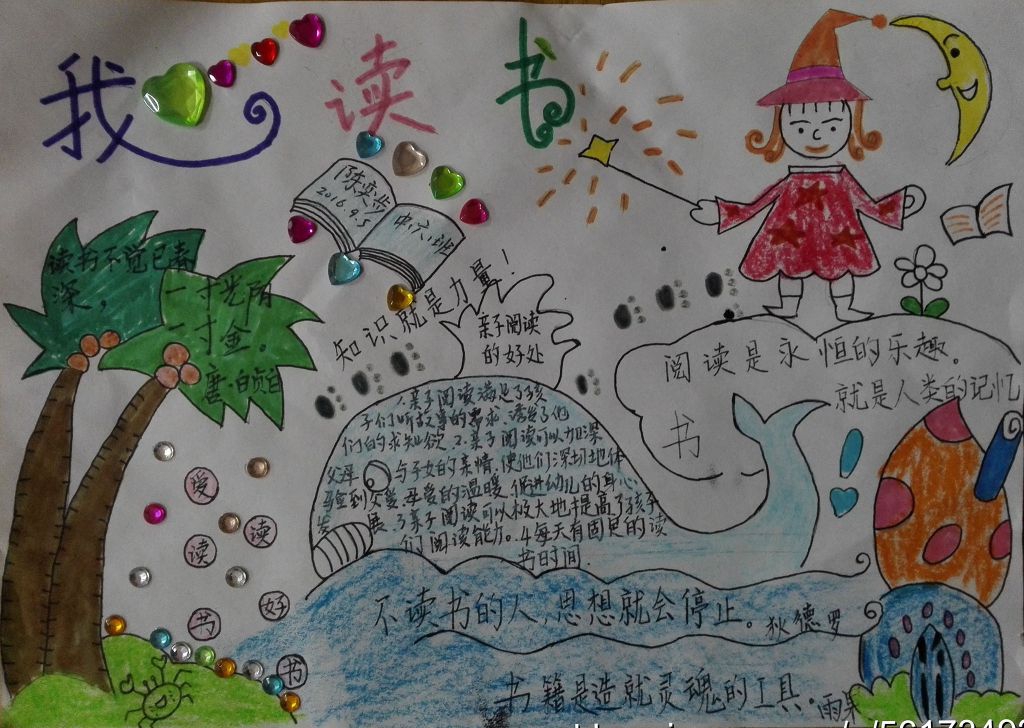 我 读书
陈奕
2016.9.5
中六班
知识就是力量!
读书不觉已春
深,一寸光阴
一寸金。
唐·白贞白
亲子阅读
的好处
1.亲子阅读满足了孩
子们听故事的需求,诱发了他
们的求知欲 2.亲子阅读可以加深
父母与子女的亲情,使他们深切地体
验到父爱、母爱的温暖,促进幼儿的身心
发展.3亲子阅读可以极大地提高了孩子
们阅读能力。4每天有固定的读
书的时间.
阅读是永恒的乐趣。
书就是人类的记忆
爱
读
读
书
好
书
不读书的人,思想就会停止。狄德罗
书籍是造就灵魂的工具.雨果